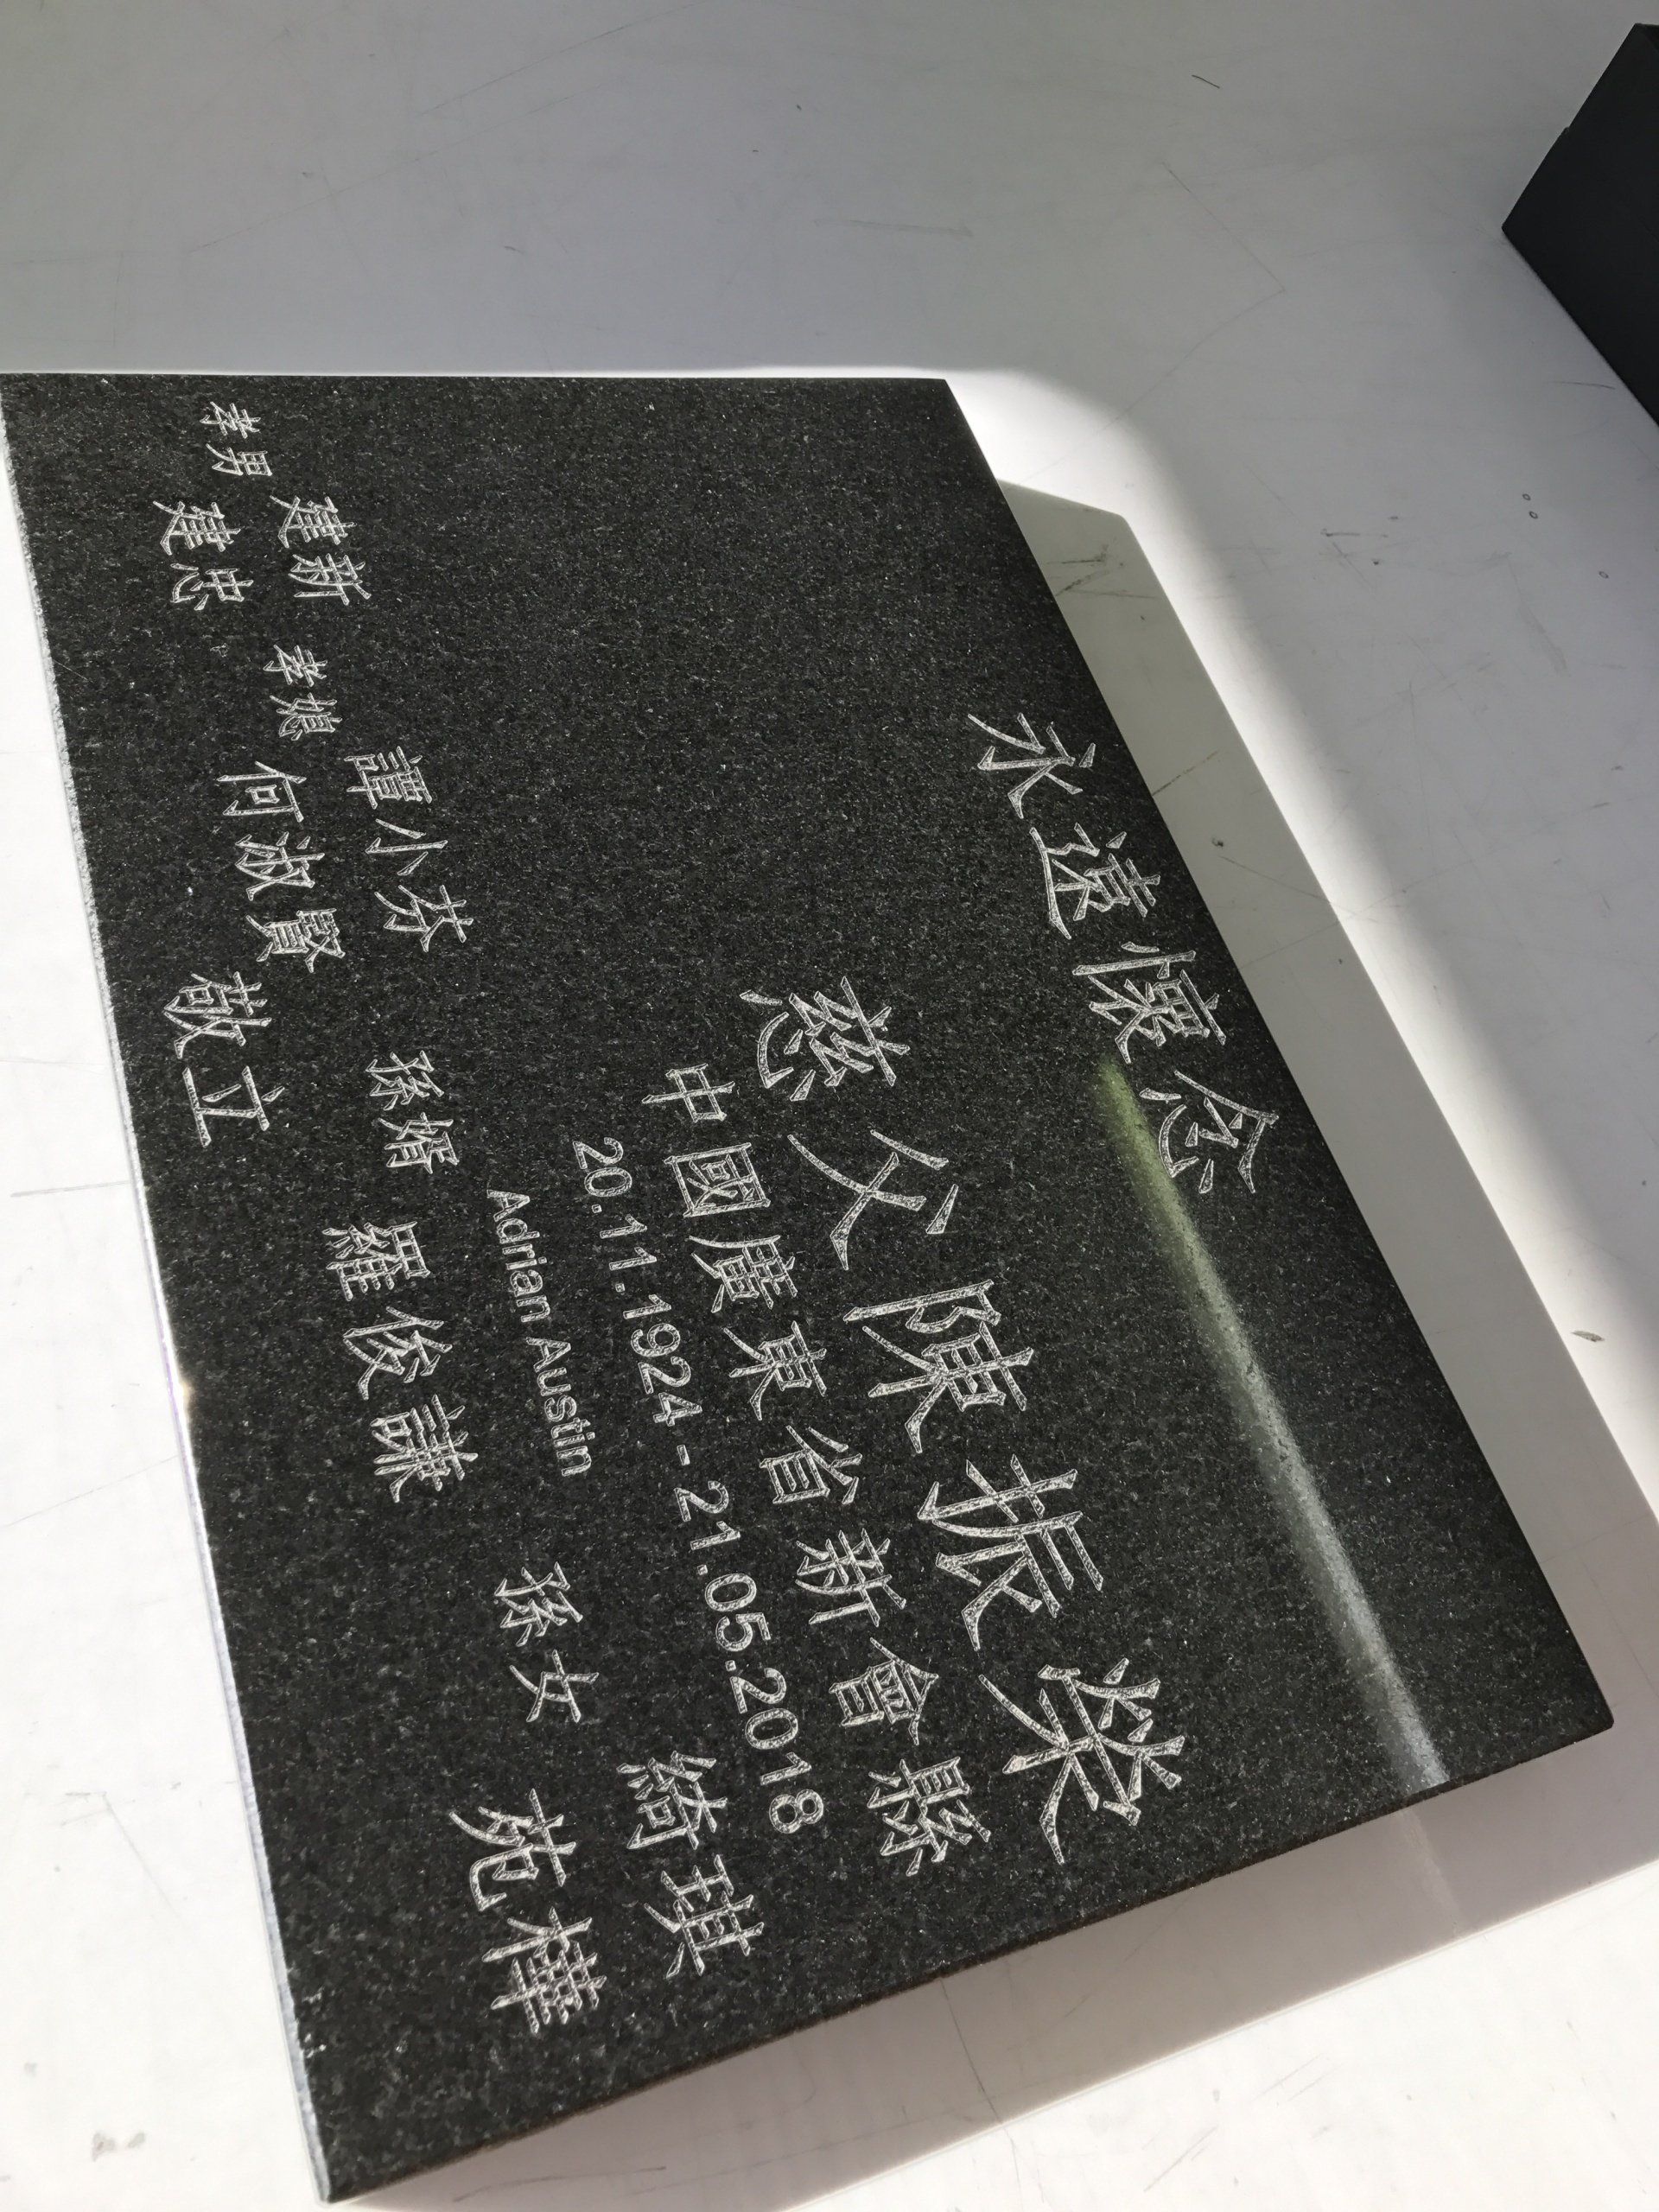 永遠懷念
慈父陳振榮
中國廣東省新會縣
20.11.1924 - 21.05.2018
孝男 建新 孝媳 譚小芬 孫婿 Adrian Austin 孫女 綺琪
建忠 何淑賢 羅俊謙 苑樺
敬立